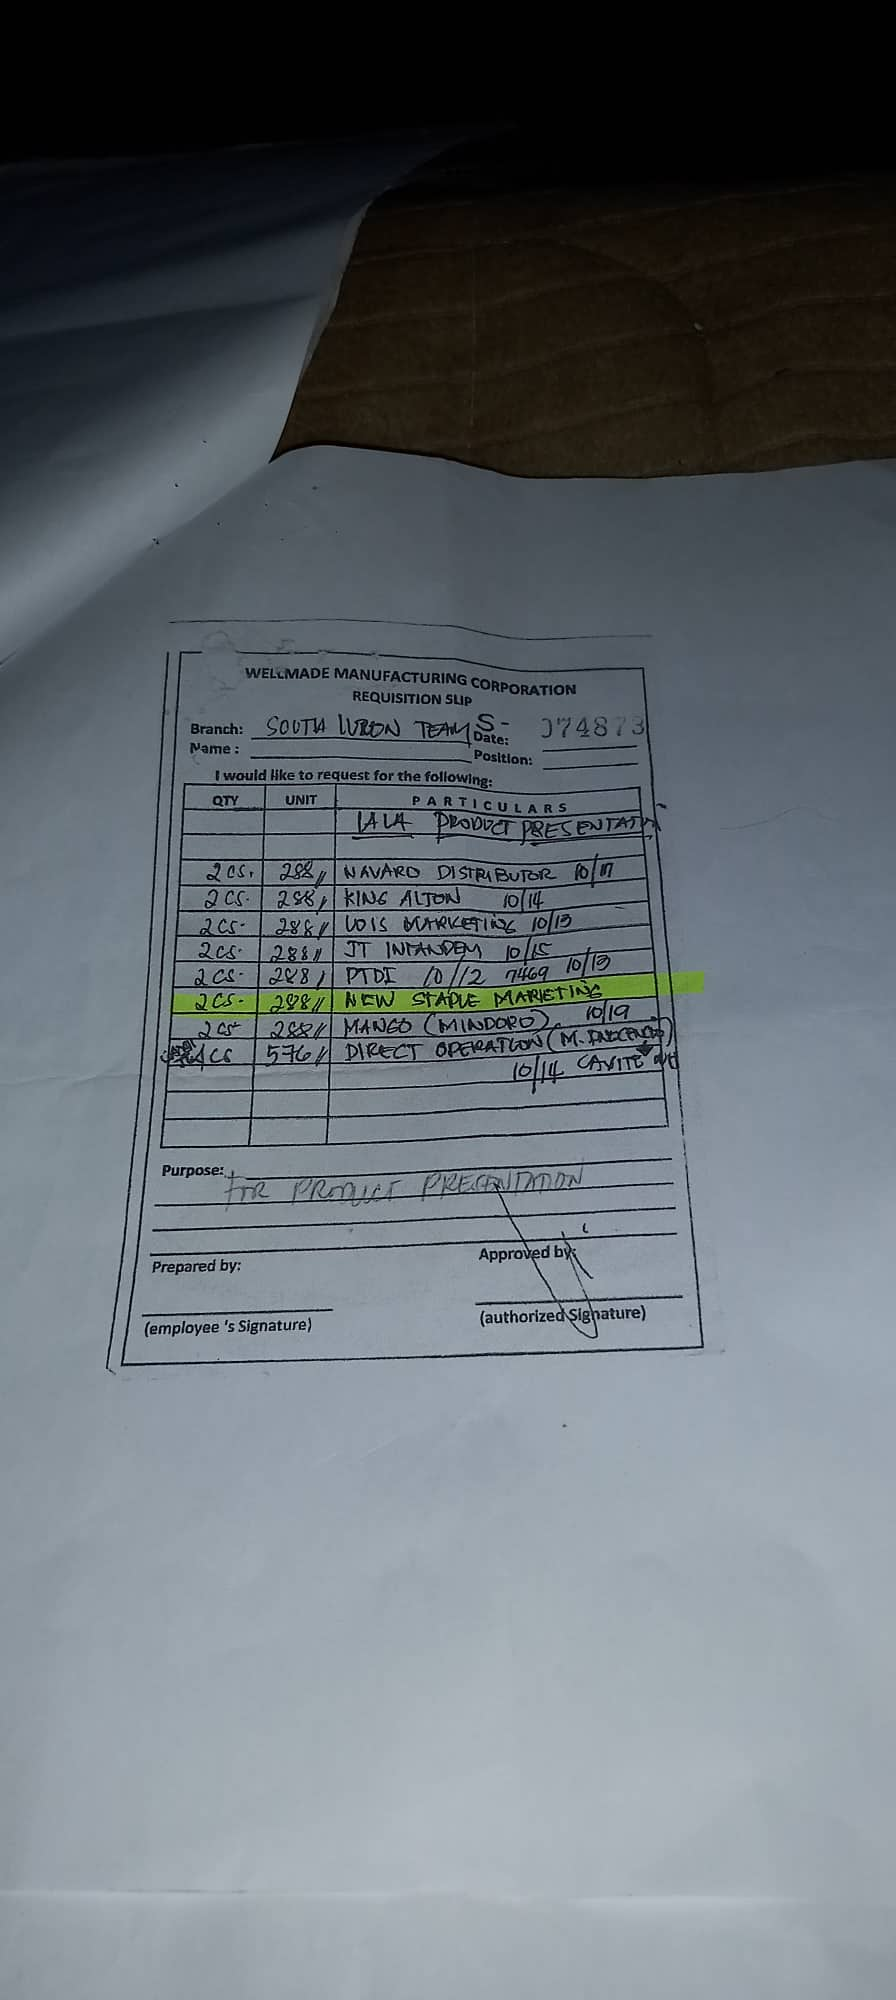 WELLMADE MANUFACTURING CORPORATION
REQUISITION SLIP
Branch: SOUTH LUZON TEAM S- 074873
Name: Date:
Position:
I would like to request for the following:
QTY UNIT PARTICULARS
LALA PRODUCT PRESENTAT
2 cs. 288 NAVARO DISTRIBUTOR 10/17
2 cs. 288 KING ALTON 10/14
2 cs. 288 LOIS MARKETING 10/13
2 cs. 288 JT INTANDEM 10/15
2 cs. 288 PTDI 10/12 7469 10/13
2 cs. 288 NEW STAPLE MARKETING
2 cs 288 MANGO (MINDORO) 10/19
4 cs 576 DIRECT OPERATION (M.
10/14 CAVITE
Purpose: FOR PRODUCT PRESENTATION
Prepared by: Approved by:
(employee 's Signature) (authorized Signature)